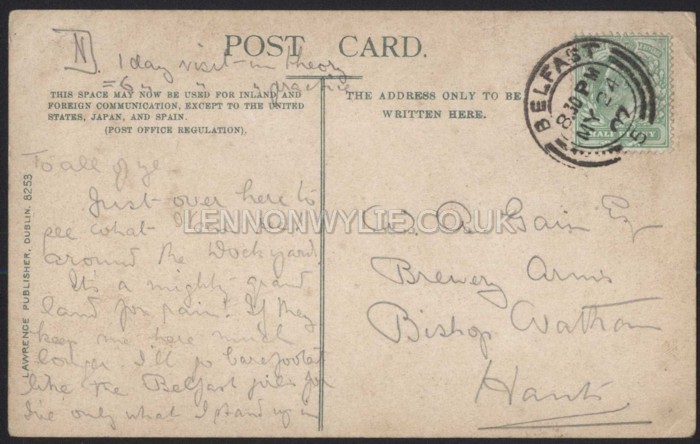 N
POST CARD.
1 day visit - in theory
= 6 " " " practice
THIS SPACE MAY NOW BE USED FOR INLAND AND
FOREIGN COMMUNICATION, EXCEPT TO THE UNITED
STATES, JAPAN, AND SPAIN.
(POST OFFICE REGULATION).
To all of ye.
Just over here to
see what I can
around the Dockyard
Its a mighty grand
land for rain! If they
keep me here much
longer I'll go barefooted
like the Belfast girls for
I've only what I stand up in
LAWRENCE PUBLISHER, DUBLIN. 8253
THE ADDRESS ONLY TO BE
WRITTEN HERE.
BELFAST
8.30 PM
MY 24
07
5
HALFPENNY
W. A. Gain Esq
Brewery Arms
Bishop Waltham
Hants
LENNONWYLIE.CO.UK